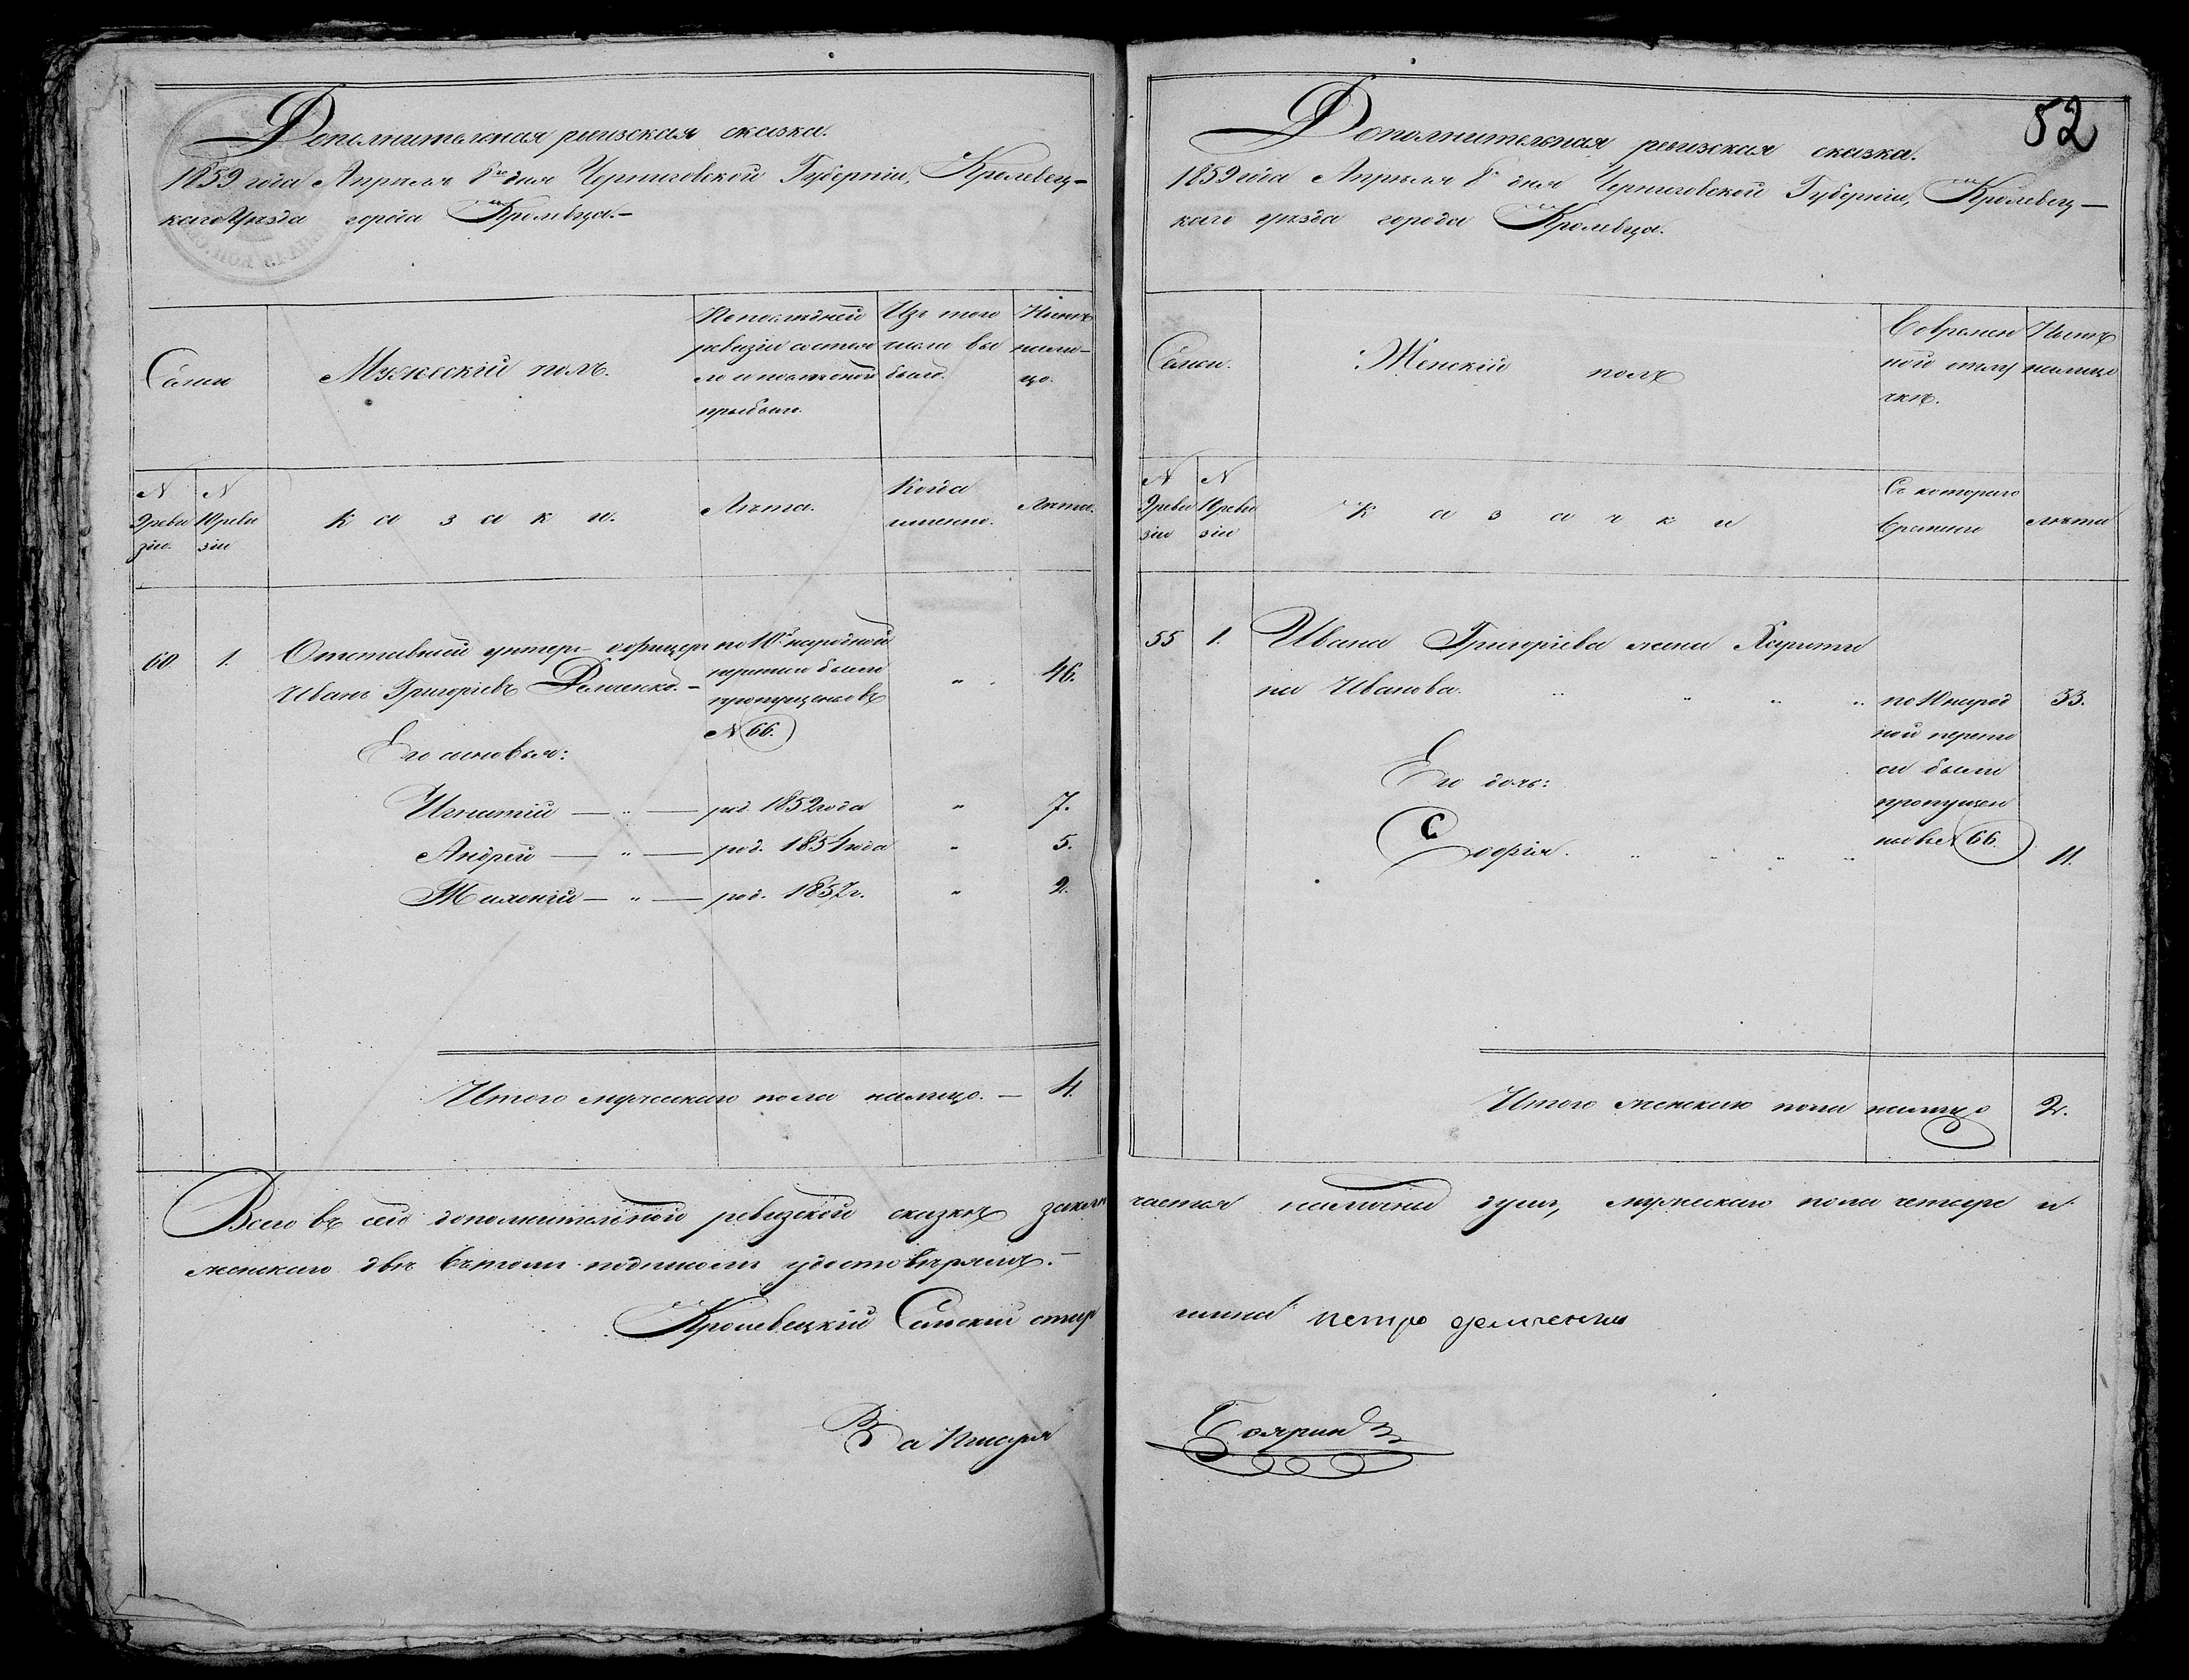 Дополнительная ревизская сказка.
1859 года Апреля 8го дня Черниговской Губернiи, Кролевец-
каго Уезда города Кролевца.-
Семьи
Мужескiй полъ.
По последней
ревизiи состоя
ло и после оной
прибыло.
Изъ того
числа вы
было.
Ныне
нали-
цо.
N
9 реви
зiи.
N
10 реви
зiи
к а з а к и.
Лета.
Когда
именно.
Лета.
60. 1. Отставный унтеръ-офицеръ
Иванъ Григорiевъ -
по 10й народной
переписи былъ
пропущенъ въ
N 66.
" 46.
Его сыновья:
Игнатiй — " — род. 1852 года " 7.
Андрей — " — род. 1854 года " 5.
— " — род. 1857 г. " 2.
Итого мужескаго пола налицо. — 4.
52
Дополнительная ревизская сказка.
1859 года Апреля 8 дня Черниговской Губернiи, Кролевец-
каго уезда города Кролевца.
Семьи.
Женскiй полъ
Во времен
ной отлу
чке.
Ныне
налицо
N
9 реви
зiи
N
10 реви
зiи
К а з а ч к и
Съ котораго
времени
лета
55 1. Ивана Григорiева жена Харити
на Иванова. " " " " 33.
по 10 народ
ной перепи
си были
пропущен
ные в N 66
Его дочь:
Софiя. " " " " 11.
Итого женскаго пола налицо 2.
Всего въ сей дополнительной ревизской сказке заклю чается наличныхъ душъ, мужескаго пола четыре и
женскаго две въ томъ подписомъ удостоверяемъ.-
Кролевецкiй Сельскiй стар шина петро
За Писаря Бояринъ